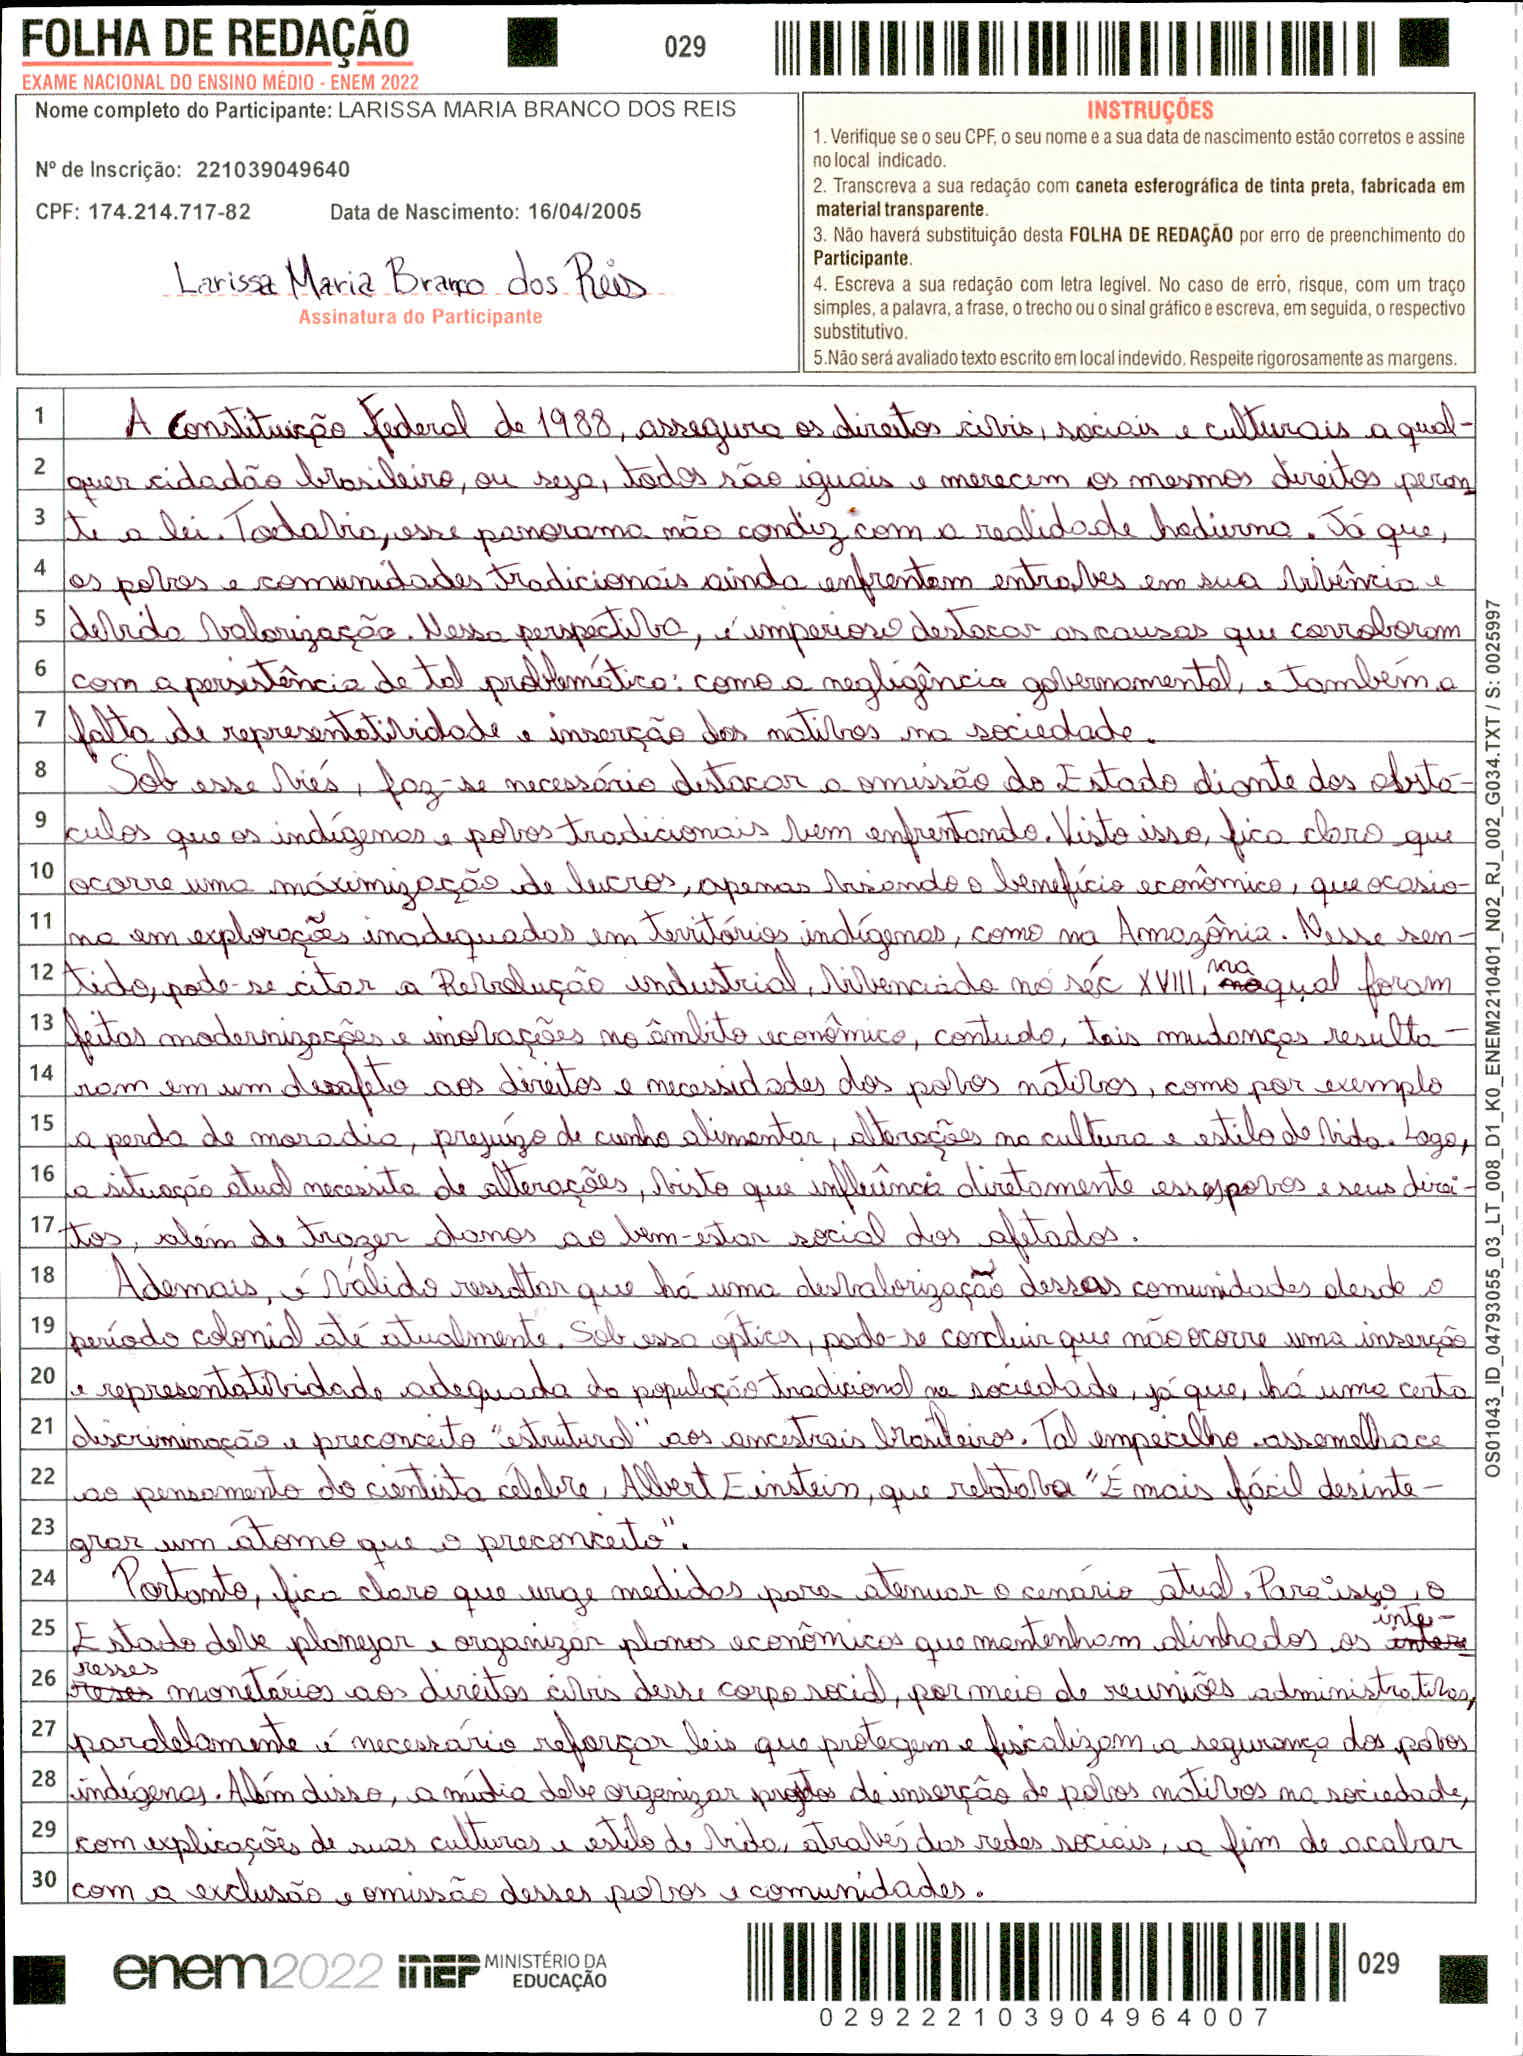 FOLHA DE REDAÇÃO
029
EXAME NACIONAL DO ENSINO MÉDIO - ENEM 2022
Nome completo do Participante: LARISSA MARIA BRANCO DOS REIS
Nº de Inscrição: 221039049640
CPF: 174.214.717-82 Data de Nascimento: 16/04/2005
Larissa Maria Branco dos Reis
Assinatura do Participante
INSTRUÇÕES
1. Verifique se o seu CPF, o seu nome e a sua data de nascimento estão corretos e assine
no local indicado.
2. Transcreva a sua redação com caneta esferográfica de tinta preta, fabricada em
material transparente.
3. Não haverá substituição desta FOLHA DE REDAÇÃO por erro de preenchimento do
Participante.
4. Escreva a sua redação com letra legível. No caso de erro, risque, com um traço
simples, a palavra, a frase, o trecho ou o sinal gráfico e escreva, em seguida, o respectivo
substitutivo.
5.Não será avaliado texto escrito em local indevido. Respeite rigorosamente as margens.
1 A Constituição Federal de 1988, assegura os direitos civis, sociais e culturais a qual-
2 quer cidadão brasileiro, ou seja, todos são iguais e merecem os mesmos direitos peran
3 te a lei. Todavia, esse panorama não condiz com a realidade hodierna. Já que,
4 os povos e comunidades tradicionais ainda enfrentam entraves em sua vivência e
5 devida valorização. Nessa perspectiva, é imperioso destacar as causas que corroboram
6 com a persistência de tal problemática: como a negligência governamental, e também a
7 falta de representatividade e inserção dos nativos na sociedade.
8 Sob esse viés, faz-se necessário destacar a omissão do Estado diante dos obstá-
9 culos que os indígenas e povos tradicionais vem enfrentando. Visto isso, fica claro que
10 ocorre uma máximização de lucros, apenas visando o benefício econômico, que ocasio-
11 na em explorações inadequadas em territórios indígenas, como na Amazônia. Nesse sen-
12 tido, pode-se citar a Revolução industrial, vivenciada no séc XVIII, na qual foram
13 feitas modernizações e inovações no âmbito econômico, contudo, tais mudanças resulta-
14 ram em um desafeto aos direitos e necessidades dos povos nativos, como por exemplo
15 a perda de moradia, prejuízo de cunho alimentar, alterações na cultura e estilo de vida. Logo,
16 a situação atual necessita de alterações, visto que influência diretamente esses povos e seus direi-
17 tos, além de trazer danos ao bem-estar social dos afetados.
18 Ademais, é válido ressaltar que há uma desvalorização dessas comunidades desde o
19 período colonial até atualmente. Sob essa óptica, pode-se concluir que não ocorre uma inserção
20 e representatividade adequada da população tradicional na sociedade, já que, há uma certa
21 discriminação e preconceito "estrutural" aos ancestrais brasileiros. Tal empecilho assemelhace
22 ao pensamento do cientista célebre, Albert Einstein, que relatava "É mais fácil desinte-
23 grar um átomo que o preconceito".
24 Portanto, fica claro que urge medidas para atenuar o cenário atual. Para isso, o
25 Estado deve planejar e organizar planos econômicos que mantenham alinhados os inte-
26 resses monetários aos direitos civis desse corpo social, por meio de reuniões administrativas,
27 paralelamente é necessário reforçar leis que protegem e fiscalizam a segurança dos povos
28 indígenas. Além disso, a mídia deve organizar projetos de inserção de povos nativos na sociedade,
29 com explicações de suas culturas e estilo de vida, através das redes sociais, a fim de acabar
30 com a exclusão e omissão desses povos e comunidades.
OS01043_ID_04793055_03_LT_008_D1_K0_ENEM2210401_N02_RJ_002_G034.TXT / S: 0025997
enem2022 inep MINISTÉRIO DA
EDUCAÇÃO
029
029222103904964007